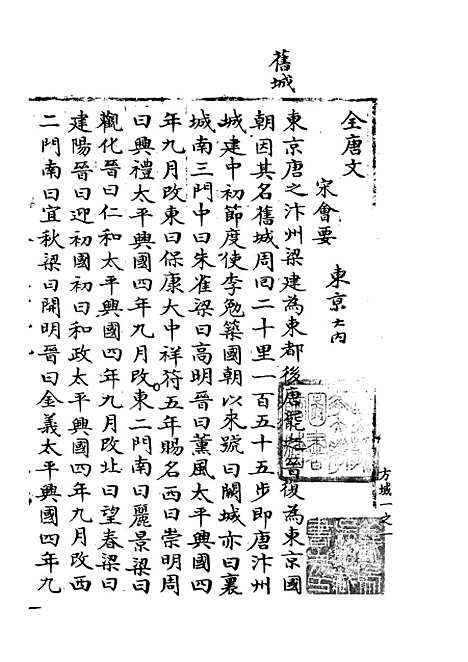 舊城
全唐文
宋會要
東京 大內
東京唐之汴州梁建為東都後唐罷晉復為東京國
朝因其名舊城周回二十里一百五十五步即唐汴州
城建中初節度使李勉築國朝以來號曰闕城亦曰裏
城南三門中曰朱雀梁曰高明晉曰薰風太平興國四
年九月改東曰保康大中祥符五年賜名西曰崇明周
曰興禮太平興國四年九月改東二門南曰麗景梁曰
觀化晉曰仁和太平興國四年九月改北曰望春梁曰
建陽晉曰迎初國初曰和政太平興國四年九月改西
二門南曰宜秋梁曰開明晉曰金義太平興國四年九
方域一之一
一